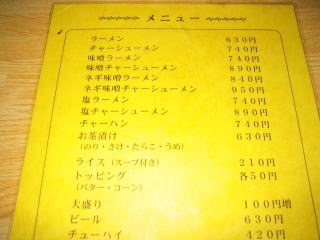 メニュー
ラーメン 630円
チャーシューメン 740円
味噌ラーメン 740円
味噌チャーシューメン 890円
ネギ味噌ラーメン 840円
ネギ味噌チャーシューメン 950円
塩ラーメン 740円
塩チャーシューメン 890円
チャーハン 740円
お茶漬け 630円
(のり・さけ・たらこ・うめ)
ライス(スープ付き) 210円
トッピング 各50円
(バター・コーン)
大盛り 100円増
ビール 630円
チューハイ 420円